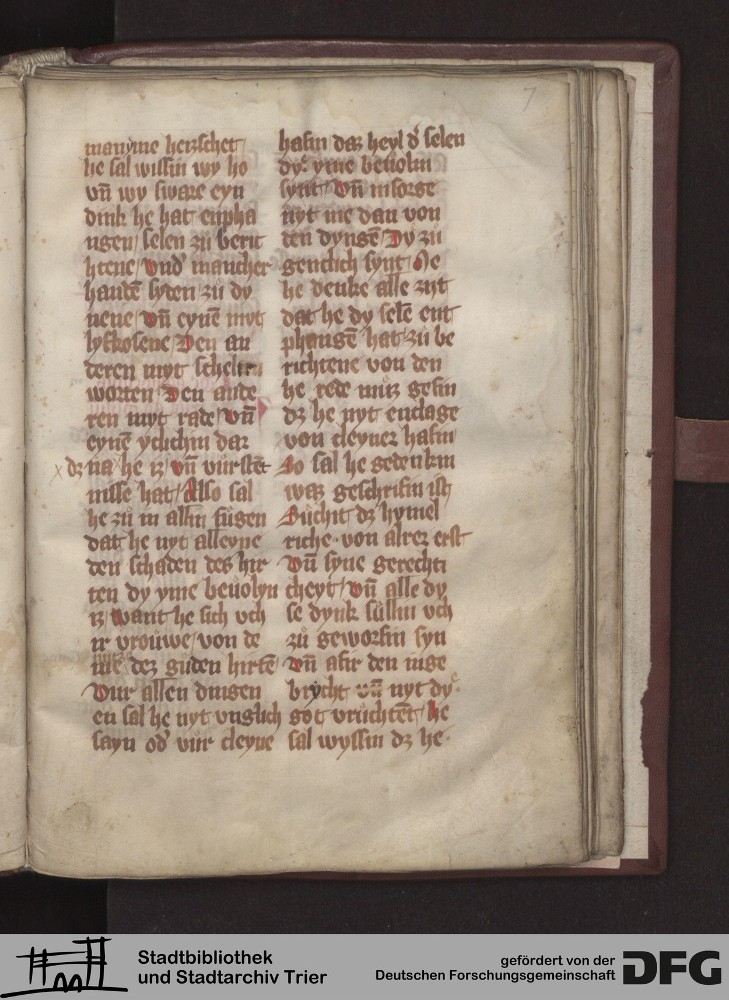 7
manyme herzschet
he sal wissin wy ho
vn̄ wy sware eyn
dink he hat enpha
ngen / selen zu berit
htene / vnd' mancher
handē syden / zu dy
nene / vn̄ eynē myt
lyfkosene / Den an
deren myt scheltin
worten / Den ande
ren myt rade / vn̄
eynē yclichin dar
x dz na he iz / vn̄ vůrstēt
nisse hat / Also sal
he zů in allin fůgen
dat he nyt alleyne
den schaden des hir
ten dy yme beuolyn
iz / want he sich vch
ir vrouwe / von de
me dez guden hirtē /
Vur allen dingen
en sal he nyt vnglich
sayn od' vůr cleyne
hafin daz heyl d' selen
dy yme beuolin
synt / Vn̄ insorge
nyt me dan von
den dyngē / Dy zu
genclich synt / Me
he denke alle zijt
dat he dy selē ent
phangē hat zu be
richtene von den
he rede můz gefin
dz he nyt enclage
von cleyner hafin
So sal he gedenkin
waz geschrifin ist /
Sůchit dz hymel
riche · von alrez erst
Vn̄ syne gerechti
cheyt / Vn̄ alle dy
se dynk sůllin vch
zů geworfin syn
Vn̄ afir den inge
brycht vn̄ nyt dy
got vrůchtēt / he
sal wyssin dz he ·
Stadtbibliothek
und Stadtarchiv Trier
gefördert von der
Deutschen Forschungsgemeinschaft
DFG